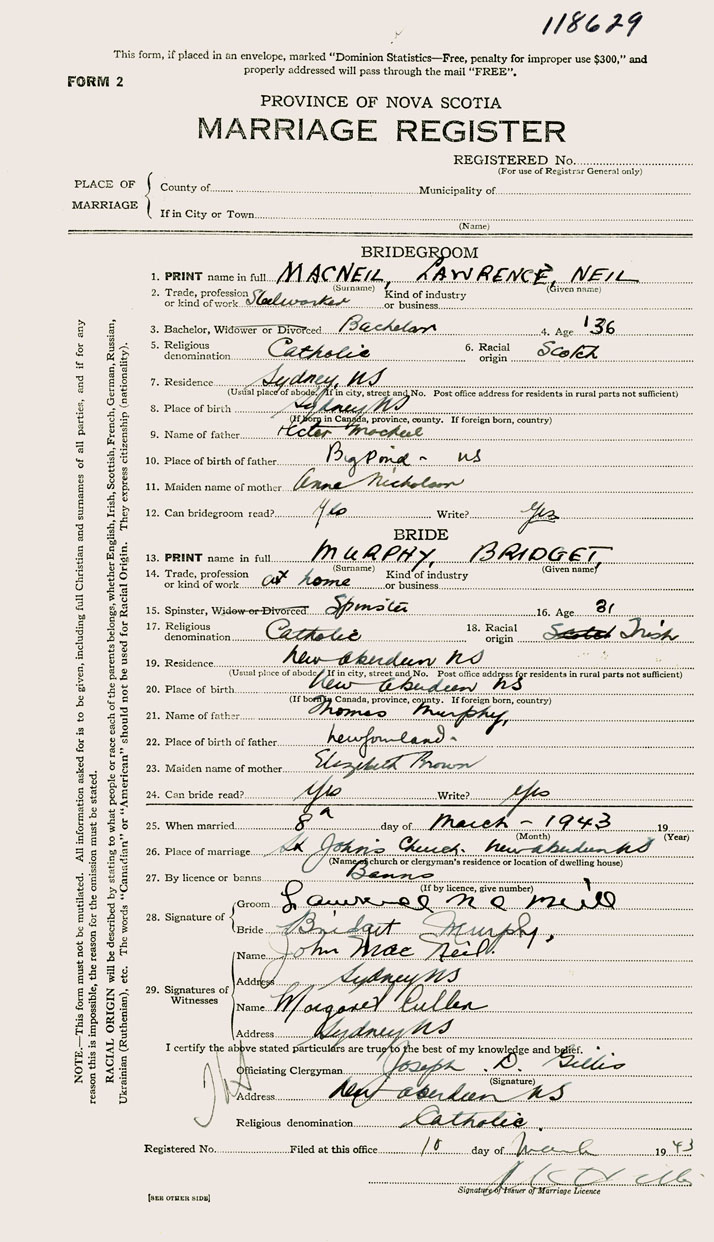 118629
This form, if placed in an envelope, marked "Dominion Statistics—Free, penalty for improper use $300," and
properly addressed will pass through the mail "FREE".
FORM 2
PROVINCE OF NOVA SCOTIA
MARRIAGE REGISTER
REGISTERED No.
(For use of Registrar General only)
PLACE OF MARRIAGE
County of Municipality of
If in City or Town
(Name)
BRIDEGROOM
1. PRINT name in full MACNEIL, LAWRENCE, NEIL
(Surname) (Given name)
2. Trade, profession or kind of work Steelworker Kind of industry or business
3. Bachelor, Widower or Divorced Bachelor 4. Age 36
5. Religious denomination Catholic 6. Racial origin Scotch
7. Residence Sydney, NS
(Usual place of abode. If in city, street and No. Post office address for residents in rural parts not sufficient)
8. Place of birth Sydney NS
(If born in Canada, province, county. If foreign born, country)
9. Name of father
10. Place of birth of father Big Pond - NS
11. Maiden name of mother Anne Nicholson
12. Can bridegroom read? Yes Write? Yes
BRIDE
13. PRINT name in full MURPHY, BRIDGET,
(Surname) (Given name)
14. Trade, profession or kind of work at home Kind of industry or business
15. Spinster, Widow or Divorced Spinster 16. Age 31
17. Religious denomination Catholic 18. Racial origin Scotch Irish
19. Residence New Aberdeen NS
(Usual place of abode. If in city, street and No. Post office address for residents in rural parts not sufficient)
20. Place of birth New Aberdeen NS
(If born in Canada, province, county. If foreign born, country)
21. Name of father Thomas Murphy,
22. Place of birth of father Newfoundland-
23. Maiden name of mother Elizabeth Brown
24. Can bride read? Yes Write? Yes
25. When married 8 day of March - 1943 19
(Month) (Year)
26. Place of marriage St John's Church. New Aberdeen NS
(Name of church or clergyman's residence or location of dwelling house)
27. By licence or banns Banns
(If by licence, give number)
28. Signature of
Groom Lawrence
Bride Bridget Murphy,
29. Signatures of Witnesses
Name John Mac Neil.
Address Sydney NS
Name Margaret Cullen
Address Sydney NS
I certify the above stated particulars are true to the best of my knowledge and belief.
Officiating Clergyman Joseph D. Gillis
(Signature)
Address New Aberdeen NS
Religious denomination Catholic.
Registered No. Filed at this office 10 day of March 19 43
Signature of Issuer of Marriage Licence
[SEE OTHER SIDE]
NOTE.—This form must not be mutilated. All information asked for is to be given, including full Christian and surnames of all parties, and if for any
reason this is impossible, the reason for the omission must be stated.
RACIAL ORIGIN will be described by stating to what people or race each of the parents belongs, whether English, Irish, Scottish, French, German, Russian,
Ukrainian (Ruthenian), etc. The words "Canadian" or "American" should not be used for Racial Origin. They express citizenship (nationality).